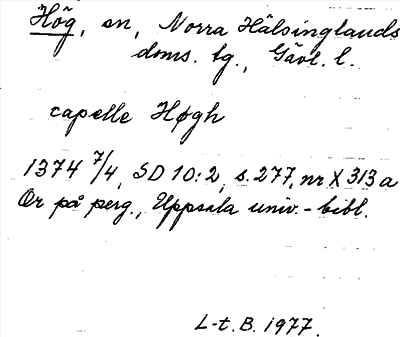 Hög, sn, Norra Hälsinglands
doms. tg., Gävl. l.
capelle Høgh
1374 7/4, SD 10:2, s. 277, nr X 313 a
Or på perg., Uppsala univ.-bibl.
L-t. B. 1977.